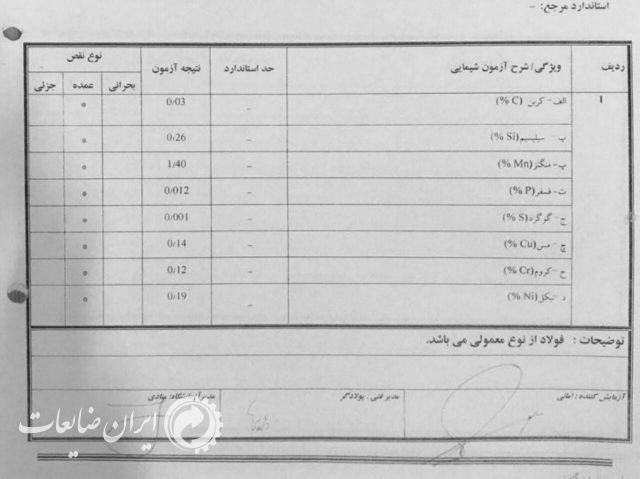 استاندارد مرجع: -
ردیف ویژگی/ شرح آزمون شیمیایی حد استاندارد نتیجه آزمون نوع نقص
بحرانی عمده جزئی
1 الف- کربن (C %) - 0/03 *
ب- سیلیسیم(Si %) - 0/26 *
پ- منگنز(Mn %) - 1/40 *
ت- فسفر(P %) - 0/012 *
ج- گوگرد(S %) - 0/001 *
چ- مس(Cu %) - 0/14 *
ح- کروم(Cr %) - 0/12 *
د- نیکل(Ni %) - 0/19 *
توضیحات : فولاد از نوع معمولی می باشد.
آزمایش کننده : امانی مدیر فنی : پولادگر مدیر آزمایشگاه: منادی
ایران ضایعات